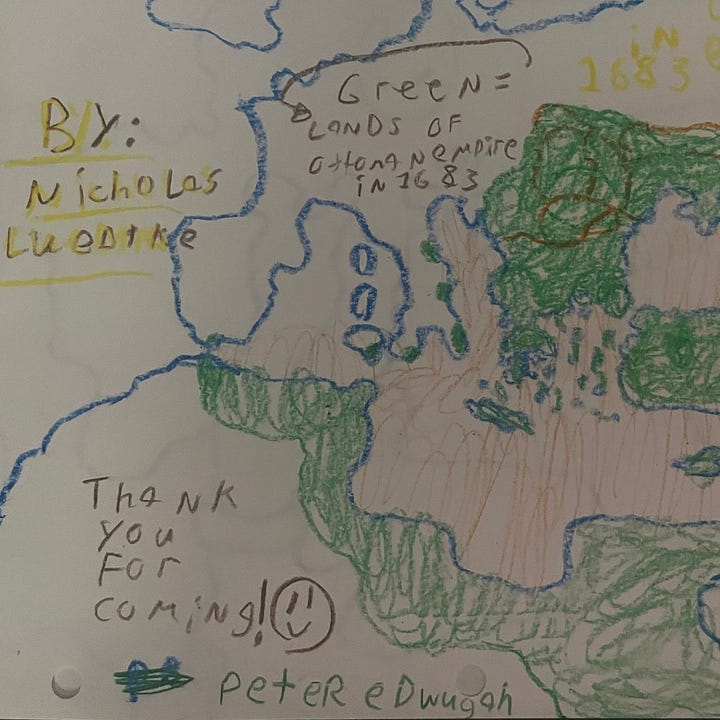 in
1683
Green =
LANDS OF
ottoman empire
in 1683
BY:
Nicholas
Luedtke
Thank
you
For
coming!
PeteR